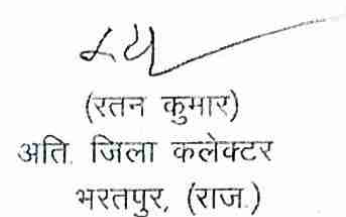 (रतन कुमार)
अति. जिला कलेक्टर
भरतपुर, (राज.)